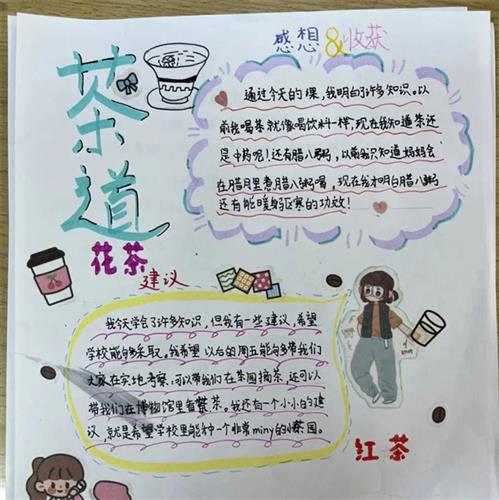 茶道
感想&收获
通过今天的课，我明白了许多知识。以
前我喝茶就像喝饮料一样，现在我知道茶还
是中药呢！还有腊八粥，以前我只知道妈妈会
在腊月里煮腊八粥喝，现在我才明白腊八粥
还有能暖胃驱寒的功效！
花茶
建议
我今天学会了许多知识，但我有一些建议，希望
学校能够采取。我希望以后的周五能够带我们
大家在实地考察，可以带我们在茶园摘茶，还可以
带我们在博物馆里看茶。我还有一个小小的建
议，就是希望学校里能种一个非常miny的小茶园。
红茶